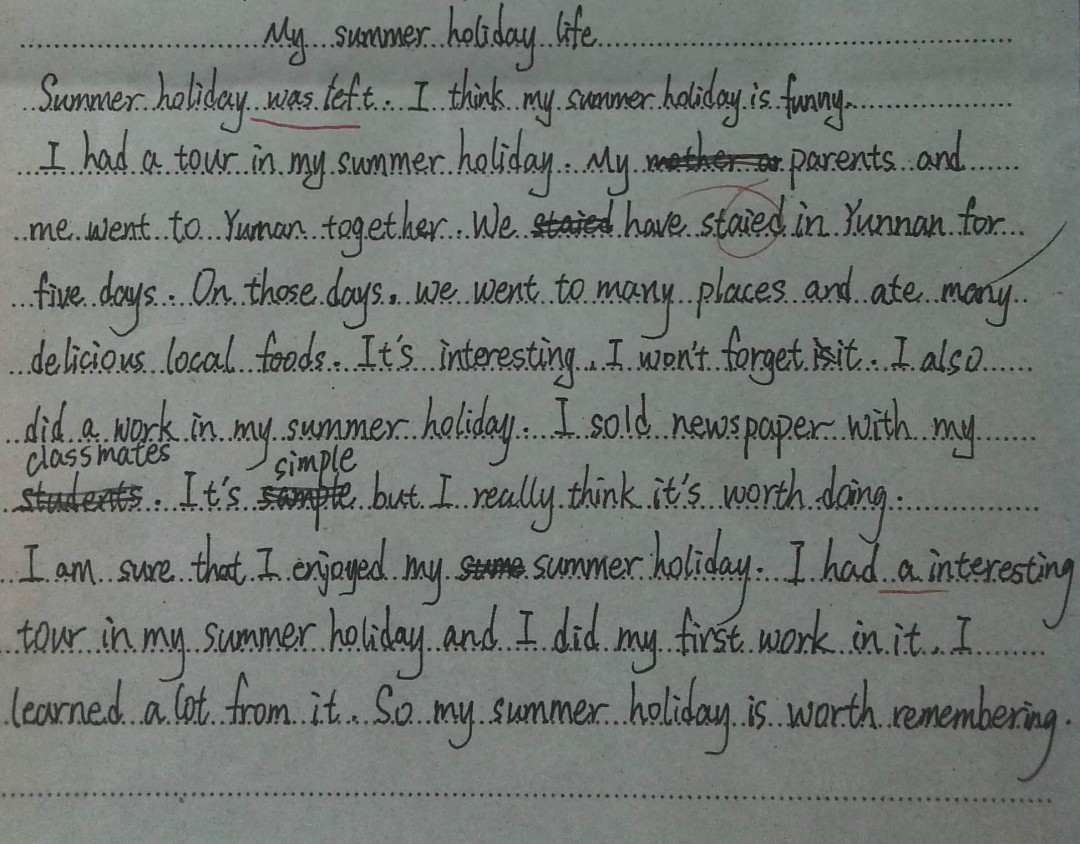 My summer holiday life
Summer holiday was left. I think my summer holiday is funny.
I had a tour in my summer holiday. My mother or parents and
me went to Yunnan together. We staied have staied in Yunnan for
five days. On those days. we went to many places and ate many
delicious local foods. It's interesting. I won't forget it. I also
did a work in my summer holiday. I sold newspaper with my
classmates simple
students. It's sample but I really think it's worth doing.
I am sure that I enjoyed my sume summer holiday. I had a interesting
tour in my summer holiday and I did my first work in it. I
learned a lot from it. So my summer holiday is worth remembering.